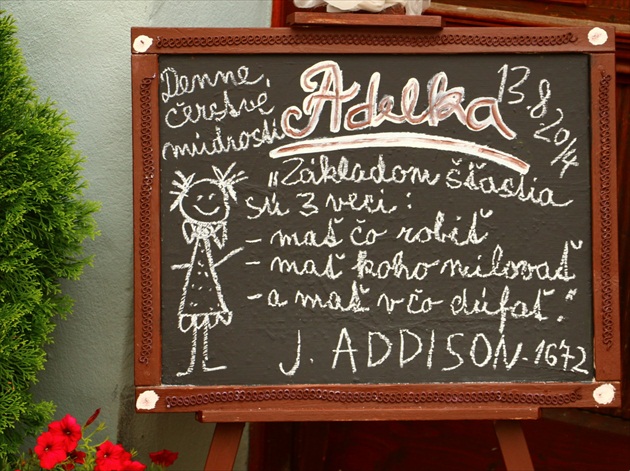 Denne,
čerstvé
múdrosti
Adelka
13.8.2014
"Základom šťastia
sú 3 veci:
- mať čo robiť
- mať koho milovať
- a mať v čo dúfať."
J. ADDISON - 1672